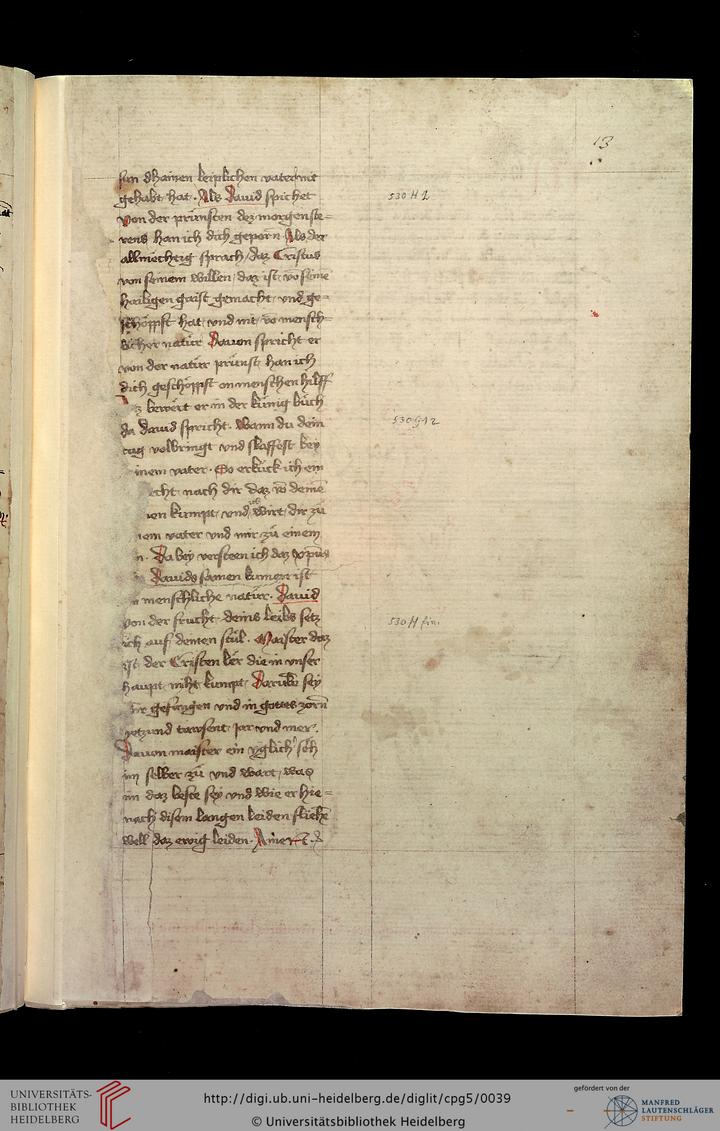 13
sun dhainen leiplichen vater nit
gehabt hat. Als Dauid sprichet
von der prünsten dez morgenste=
rens han ich dich geporn Als der
allmechtig sprach / daz Cristus
von seinem willen / daz ist / vō seinē
hailigen gaist gemacht / vnd ge=
schöppft hat / vnd nit / vō mensch=
licher natür Dauon spricht er
von der natür prünst / han ich
dich geschöppft on menschen hilff
z bewert er in der künig büch
da dauid spricht. Wann du dein
tag volbringst vnd slaffest bey
inem vater. So erkück ich ein
echt / nach dir daz vō deinē
en kumpt / vnd ich wirt / dir zü
em vater vnd mir zü einem
n. Da bey versteen ich daz xpūs
Dauids samen kumen ist
n menschliche natür. Dauid
von der frucht deins leibs setz
ich auf deinen stül. Maister daz
ist der Cristen ler die in vnser
haupt niht kumpt. Darumb sey
wir gefangen vnd in gottes zorn
yetzund tawsent jar vnd mer.
Dauon maister ein yglich' sech
im selber zü vnd wart / was
im daz beste sey vnd wie er hie=
nach disem langen leiden fliehē
well daz ewig leiden. Amen
530 H 2
530 G 1 2
530 H fin.
UNIVERSITÄTS-
BIBLIOTHEK
HEIDELBERG
http://digi.ub.uni-heidelberg.de/diglit/cpg5/0039
© Universitätsbibliothek Heidelberg
gefördert von der
MANFRED
LAUTENSCHLÄGER
STIFTUNG